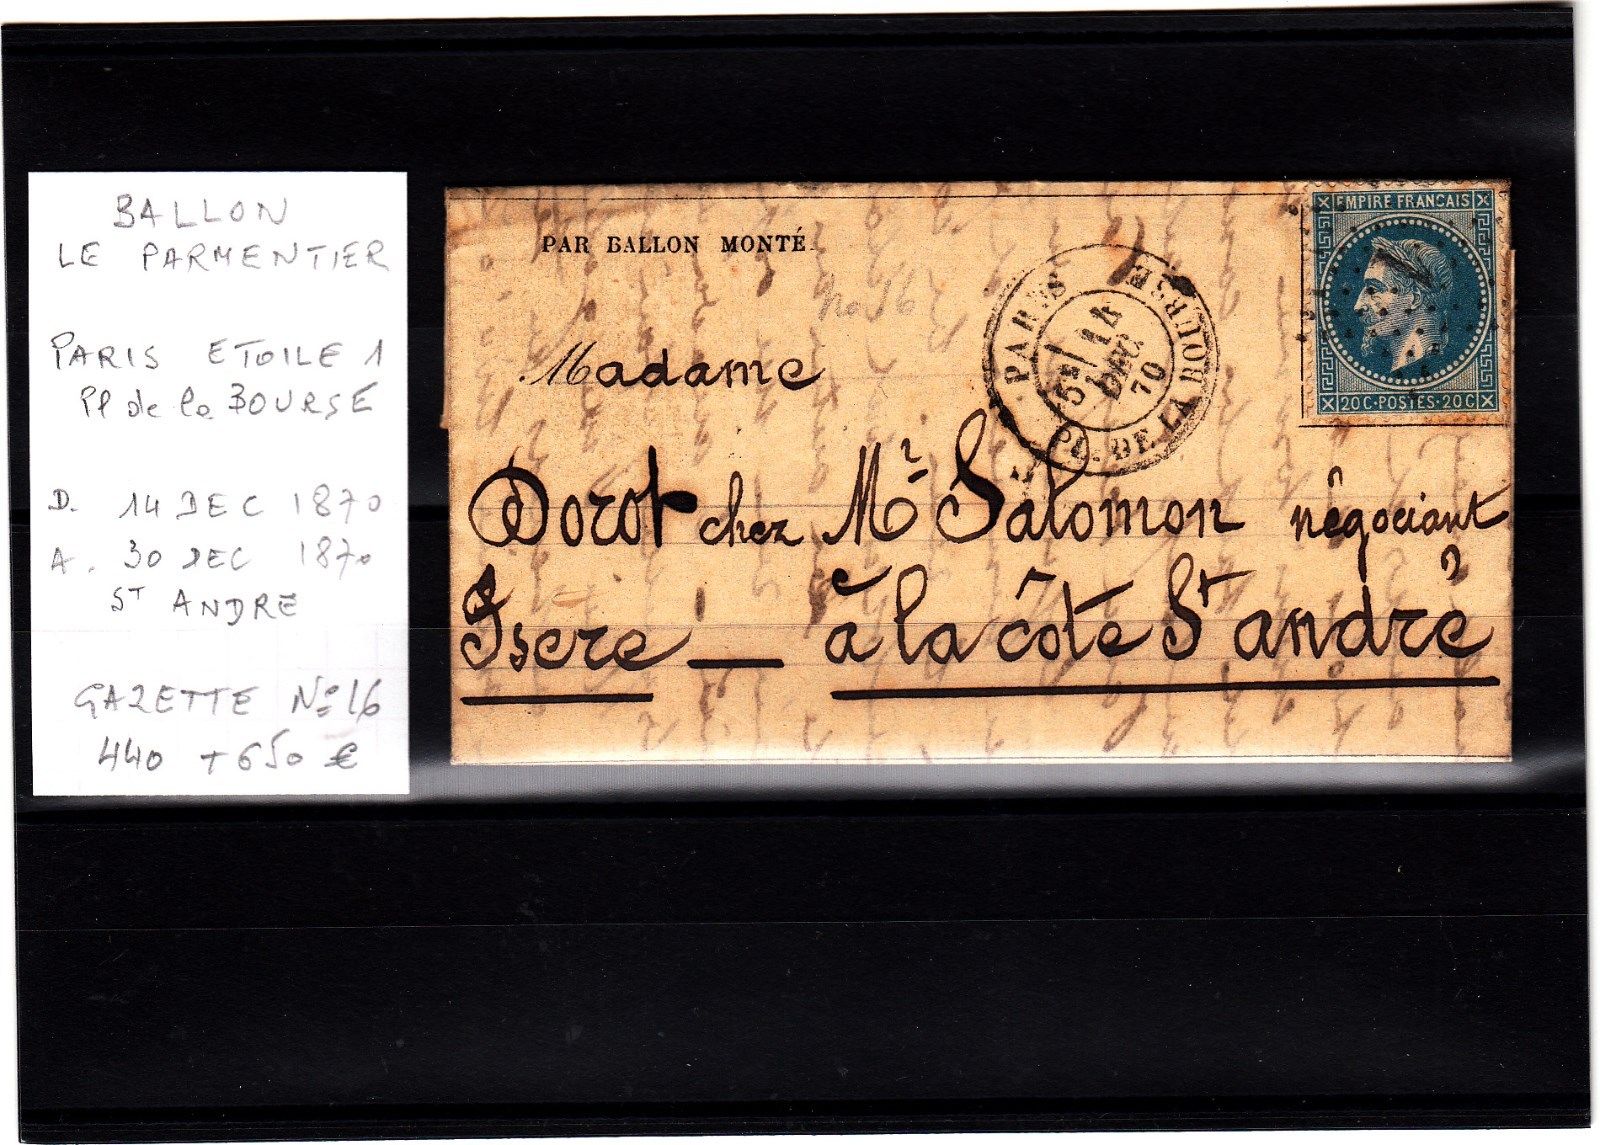 BALLON
LE PARMENTIER
PARIS ETOILE 1
Pl de la BOURSE
D. 14 DEC 1870
A. 30 DEC 1870
ST ANDRE
GAZETTE No 16
440 + 650 €
PAR BALLON MONTÉ
no 16
Madame
Dorot chez Mr Salomon négociant
Isere — à la côte St andré
PARIS
PL. DE LA BOURSE
5E
14
DEC
70
EMPIRE FRANCAIS
1
20 C · POSTES · 20 C